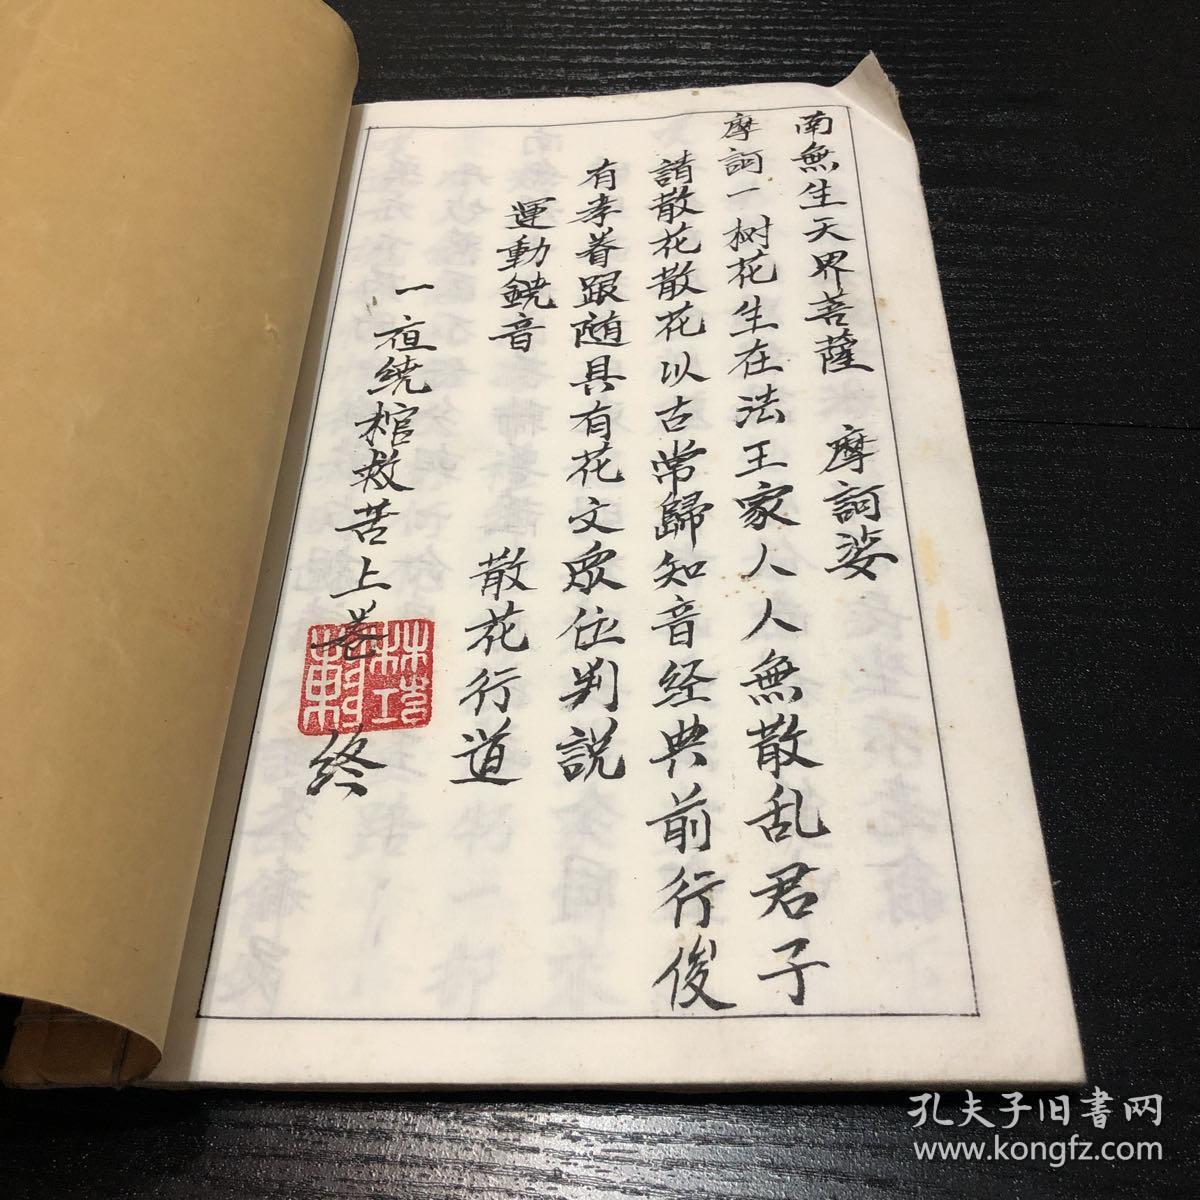 南無生天界菩薩 摩訶娑
摩訶一树花生在法王家人人無散乱君子
請散花散花以古常歸知音经典前行俊
有孝眷跟随具有花文眾位判説
運動鐃音 散花行道
一夜绕棺救苦上卷 終
孔夫子旧書网
www.kongfz.com